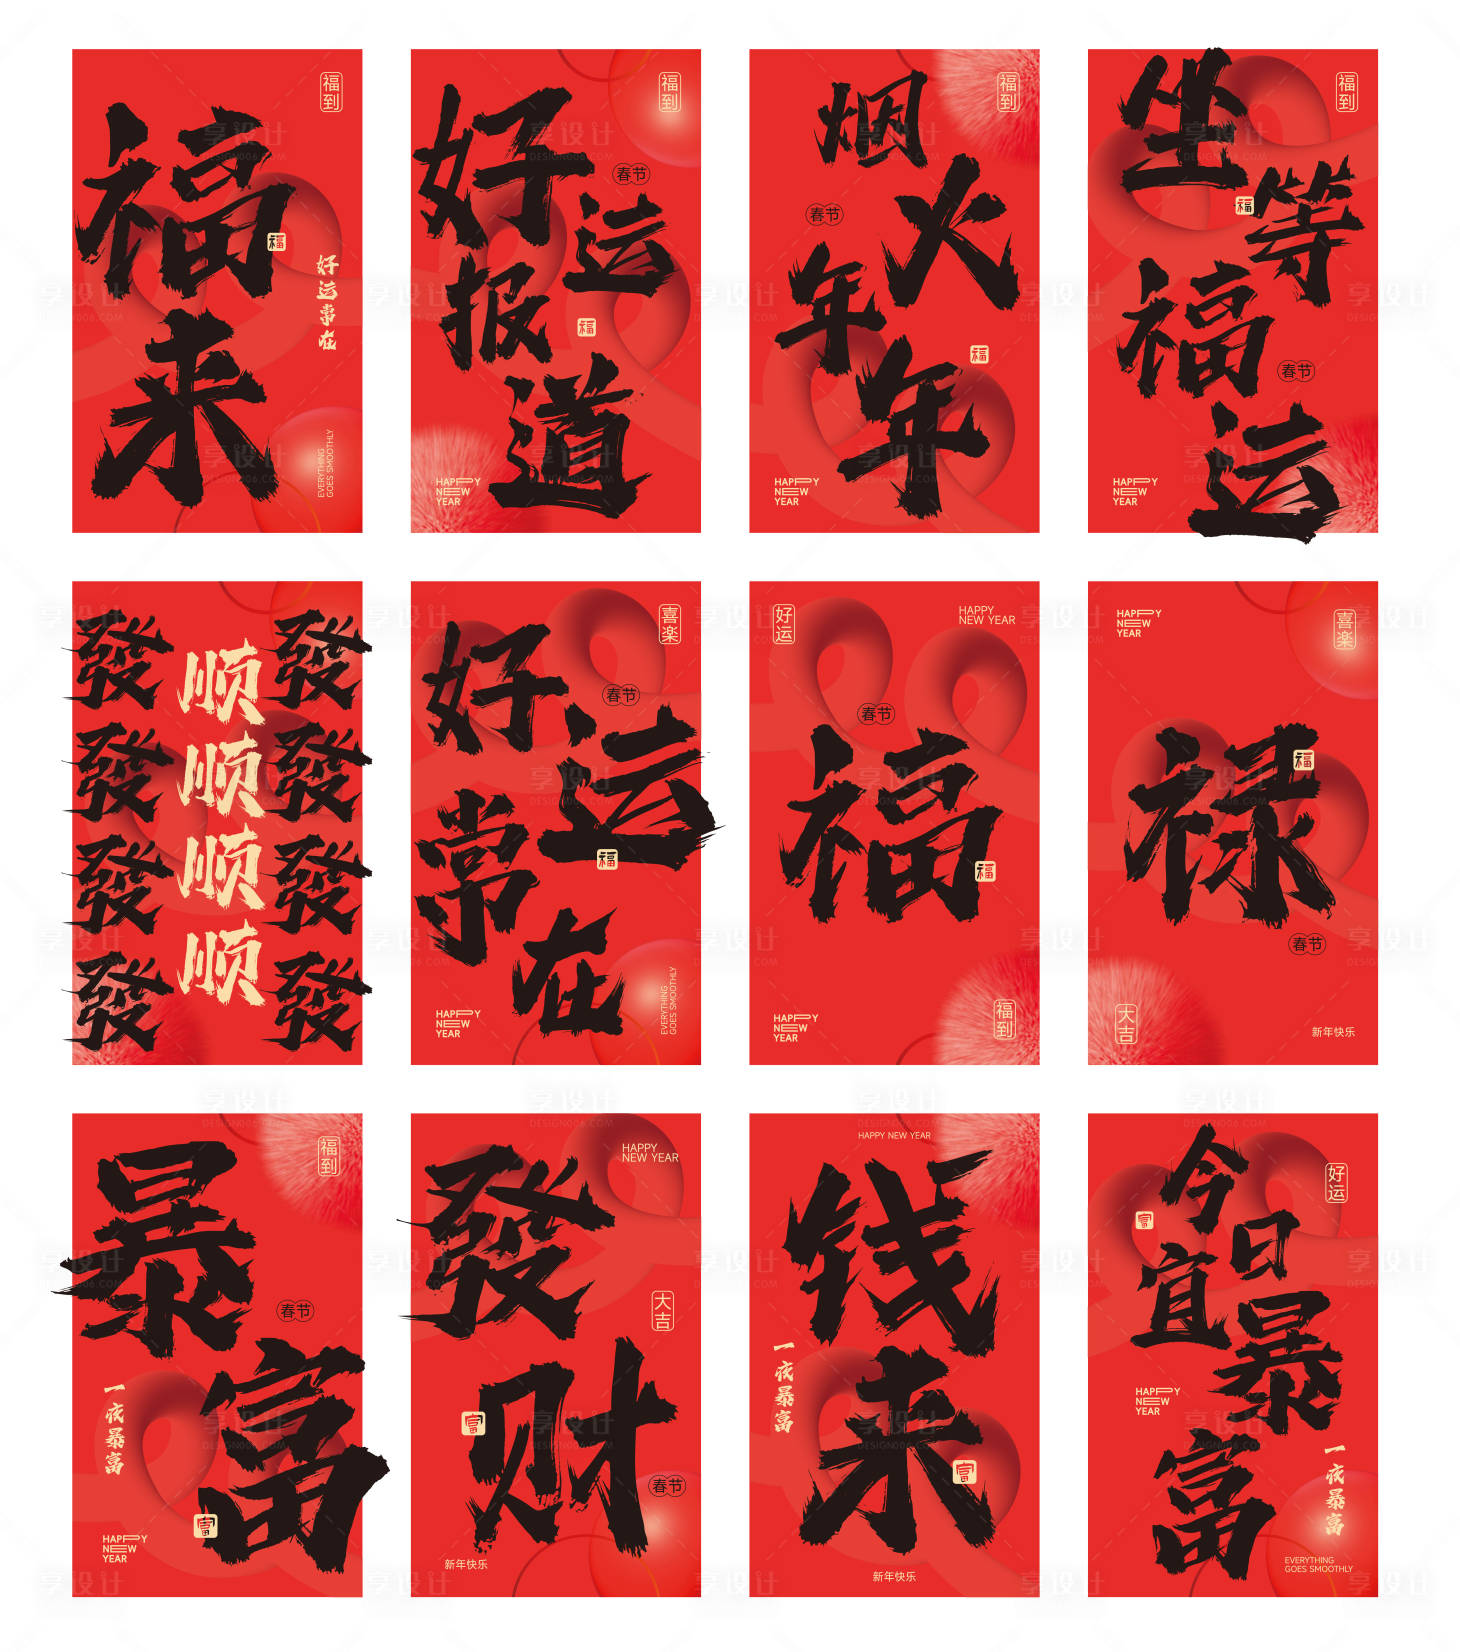 福到
福来
福
好运常在
EVERYTHING
GOES SMOOTHLY
福到
好运报道
春节
福
HAPPY
NEW
YEAR
福到
烟火年年
春节
福
HAPPY
NEW
YEAR
福到
坐等福运
福
春节
HAPPY
NEW
YEAR
發發發發
顺顺顺顺
發發發發
喜楽
好运常在
春节
福
HAPPY
NEW
YEAR
EVERYTHING
GOES SMOOTHLY
好运
HAPPY
NEW YEAR
春节
福
福
HAPPY
NEW
YEAR
福到
HAPPY
NEW
YEAR
喜楽
禄
福
春节
大吉
新年快乐
福到
暴富
春节
一夜暴富
富
HAPPY
NEW
YEAR
HAPPY
NEW YEAR
發财
大吉
富
春节
新年快乐
HAPPY NEW YEAR
钱来
一夜暴富
富
新年快乐
好运
今日宜暴富
富
HAPPY
NEW
YEAR
一夜暴富
EVERYTHING
GOES SMOOTHLY
享设计
DESIGN006.COM